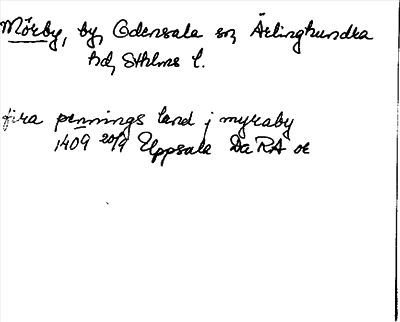 Mörby, by, Odensala sn, Ärlinghundra
hd, Sthlms l.
fira pennings land j myraby
1409 20/9 Uppsala Da RA or